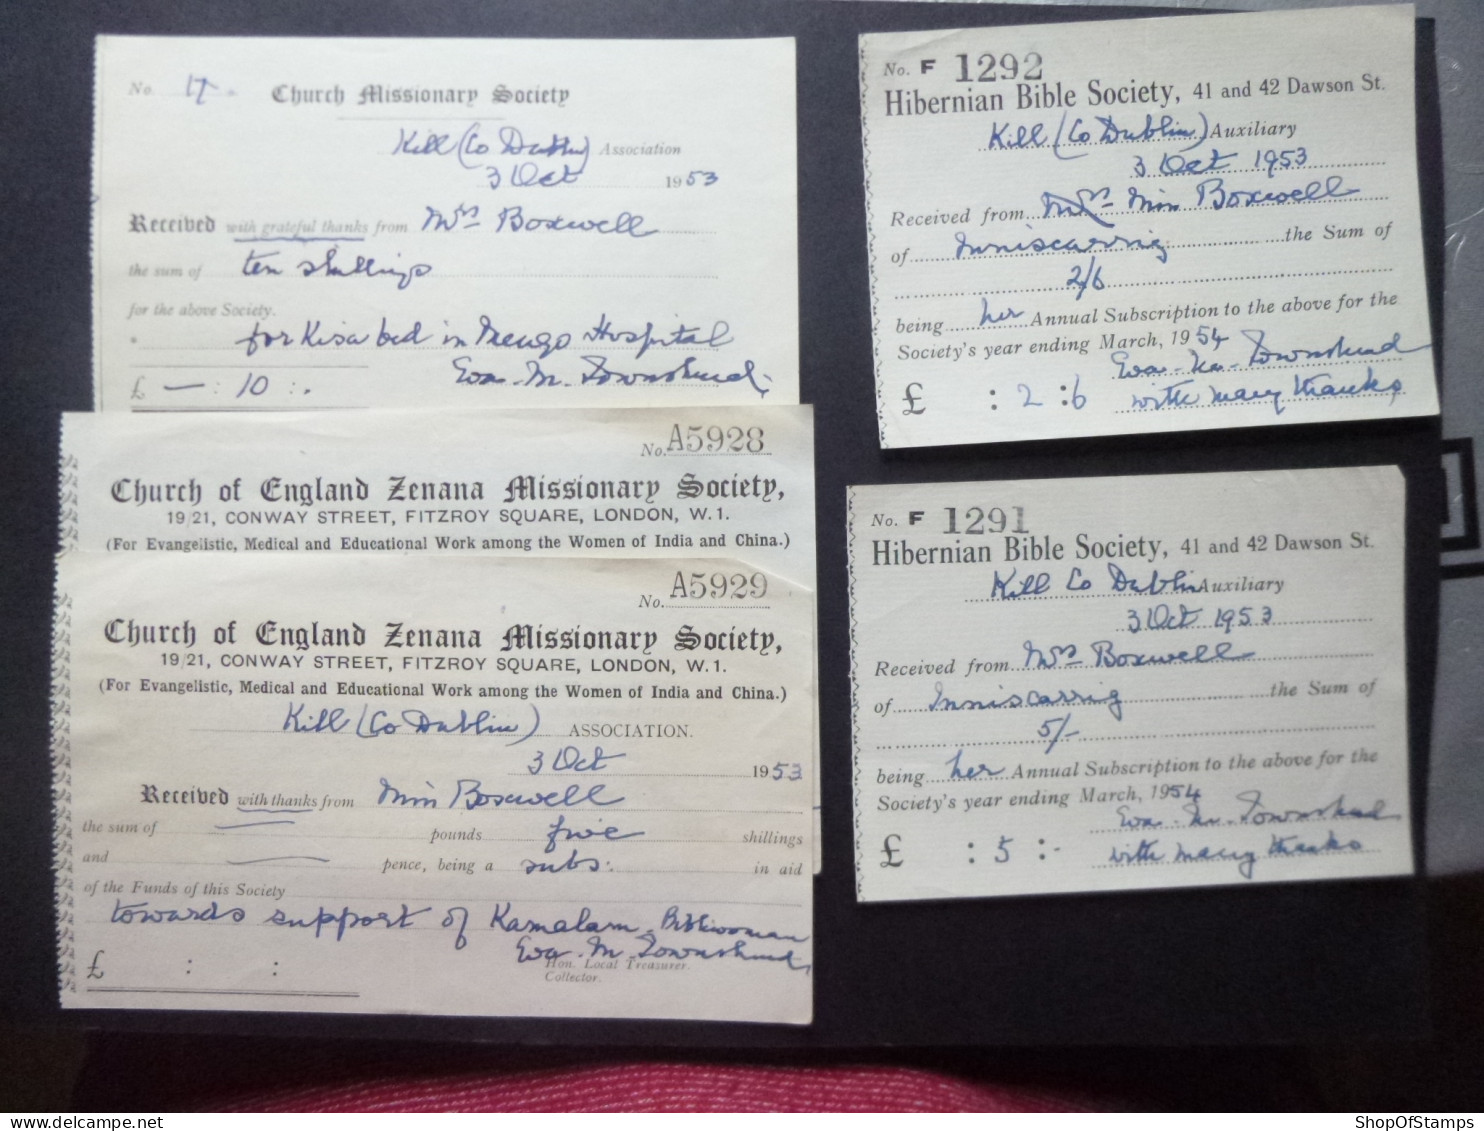 No. 17.
Church Missionary Society
Kill (Co Dublin) Association
3 Oct 1953
Received with grateful thanks from Mrs Boxwell
the sum of ten shillings
for the above Society.
for Kisa bed in Mengo Hospital
Eva. M. Townshend.
£ — : 10 : .
No. A5928
Church of England Zenana Missionary Society,
19/21, CONWAY STREET, FITZROY SQUARE, LONDON, W.1.
(For Evangelistic, Medical and Educational Work among the Women of India and China.)
No. A5929
Church of England Zenana Missionary Society,
19/21, CONWAY STREET, FITZROY SQUARE, LONDON, W.1.
(For Evangelistic, Medical and Educational Work among the Women of India and China.)
Kill (Co Dublin) ASSOCIATION.
3 Oct 1953
Received with thanks from Miss Boxwell
the sum of — pounds five shillings
and — pence, being a subs: in aid
of the Funds of this Society
towards support of Kamalam - Biblewoman
Eva. M. Townshend
Hon. Local Treasurer.
Collector.
£ : :
No. F 1292
Hibernian Bible Society, 41 and 42 Dawson St.
Kill (Co Dublin) Auxiliary
3 Oct 1953
Received from Mrs Miss Boxwell
of Inniscarrig the Sum of
2/6
being her Annual Subscription to the above for the
Society's year ending March, 1954
Eva. M. Townshend
£ : 2 : 6 with many thanks
No. F 1291
Hibernian Bible Society, 41 and 42 Dawson St.
Kill Co Dublin Auxiliary
3 Oct 1953
Received from Mrs Boxwell
of Inniscarrig the Sum of
5/-
being her Annual Subscription to the above for the
Society's year ending March, 1954
Eva. M. Townshend
£ : 5 : - with many thanks
ShopOfStamps